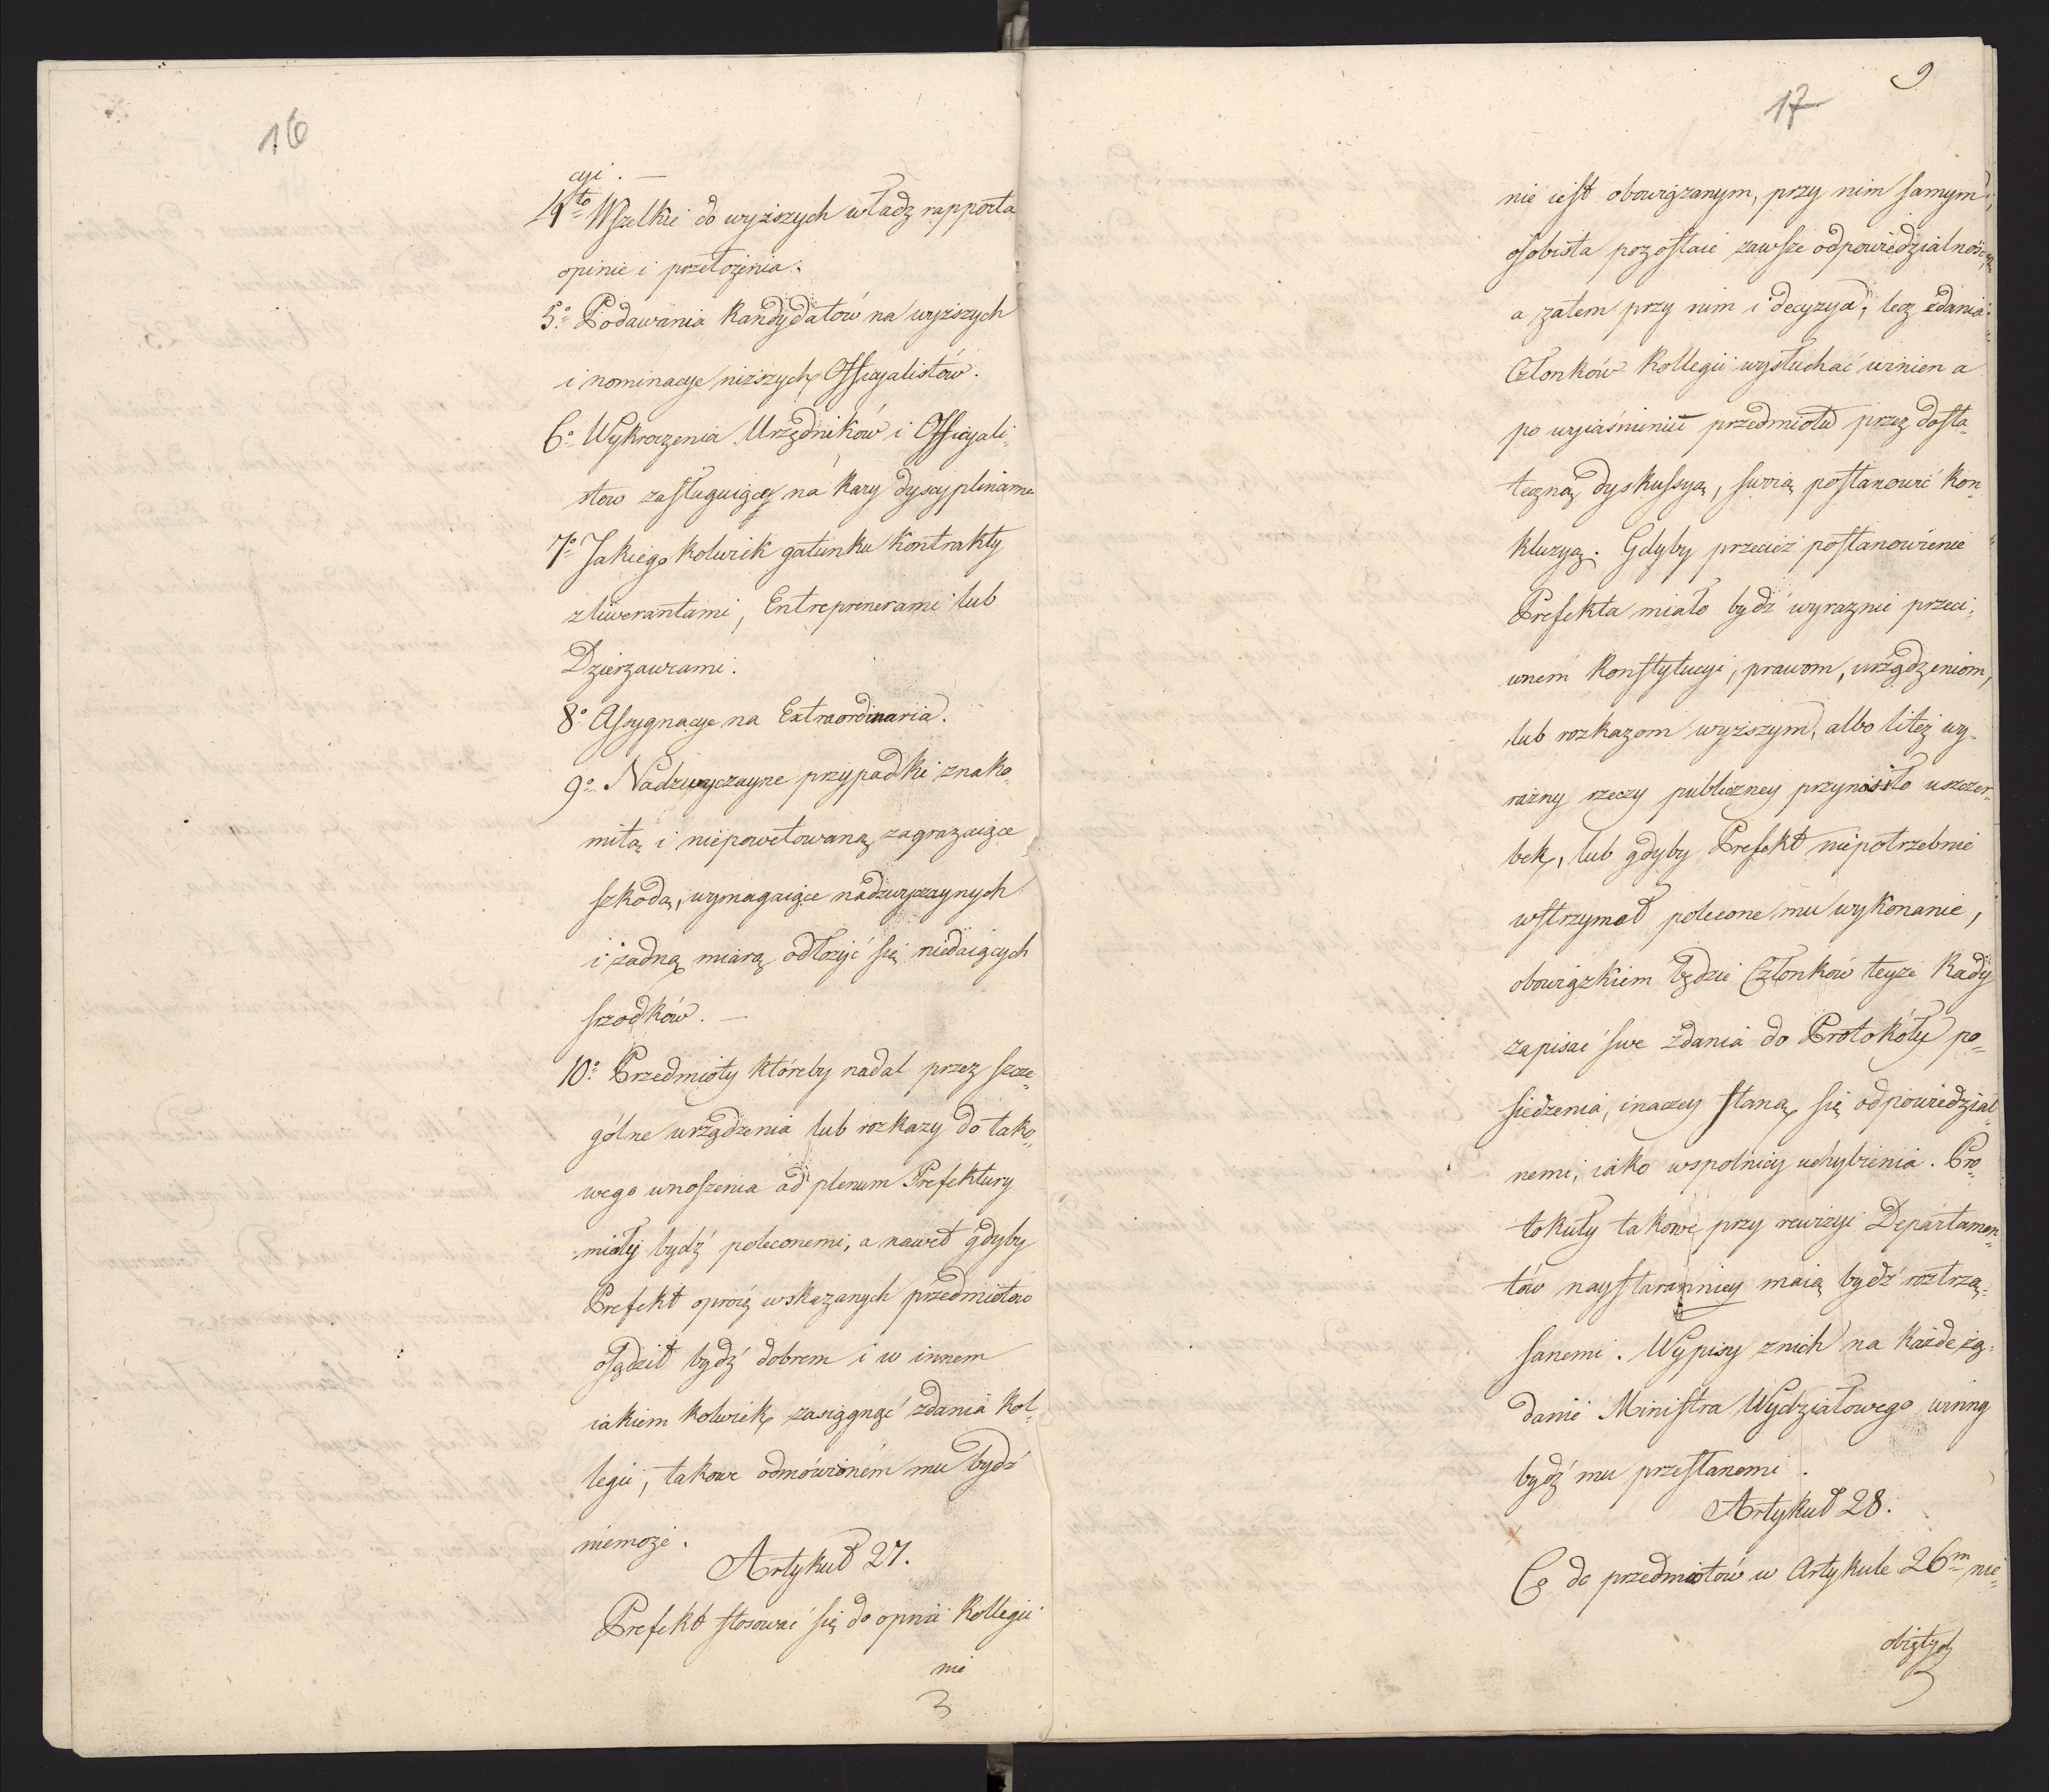 16
cyi. —
4to Wszelkie do wyższych władz rapporta
opinie i przełożenia.
5o Podawania Kandydatów na wyższych
i nominacye niższych Officyalistów.
6o Wykroczenia Urzędników i Officyali-
stow zasługuiące na kary dyscyplinarne
7o Jakiego kolwiek gatunku Kontrakty
z liwerantami, Entreprenerami lub
Dzierzawcami.
8o Assygnacye na Extraordinaria.
9o Nadzwyczayne przypadki znako-
mitą i niepowetowaną zagrażaiące
szkodą, wymagaiące nadzwyczaynych
i żadną miarą odłożyć się niedaiących
srzodków. —
10o Przedmioty któreby nadal przez szcze-
gólne urządzenia lub rozkazy do tako-
wego wnoszenia ad plenum Prefektury
miały bydź poleconemi, a nawet gdyby
Prefekt oprócz wskazanych przedmiotow
osądził bydź dobrem i w innem
iakiem kolwiek zasiągnąć zdania Kol-
legii, takowe odmówioném mu bydź
niemoże.
Artykuł 27.
Prefekt stosować się do opinii Kollegii
nie
3
9
17
nie iest obowiązanym, przy nim samym
osobista pozostaie zawsze odpowiedzialność
a zatem przy nim i decyzya, lecz zdania
Członków Kollegii wysłuchać winien a
po wyiaśnieniu przedmiotu przez dosta-
teczną dyskussyą, swoią postanowić kon-
kluzyą. Gdyby przecież postanowienie
Prefekta miało bydź wyraznie przeci-
wnem Konstytucyi, prawom, urządzeniom,
lub rozkazom wyższym, albo liteż wy-
raźny rzeczy publiczney przynosiło uszczer-
bek, lub gdyby Prefekt niepotrzebnie
wstrzymał polecone mu wykonanie,
obowiązkiem będzie Członków teyże Rady
zapisać swe zdania do Protokółu po-
siedzenia, inaczey staną się odpowiedzial-
nemi, iako wspolnicy uchybienia. Pro-
tokuły takowe przy rewizyi Departamen-
tów naystaranniey maią bydź roztrzą-
sanemi. Wypisy z nich na każde żą-
danie Ministra Wydziałowego winny
bydź mu przesłanemi.
Artykuł 28.
Co do przedmiotów w Artykule 26m nie-
obiętych